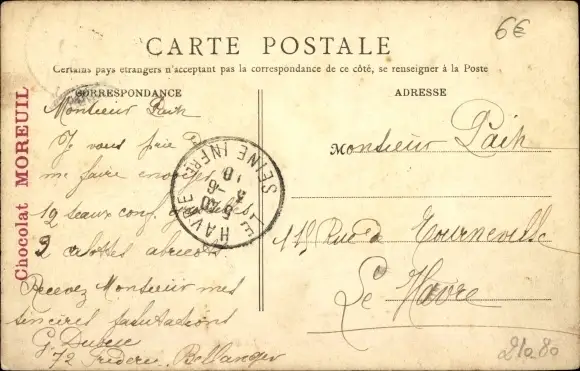 6€
CARTE POSTALE
Certains pays étrangers n'acceptant pas la correspondance de ce côté, se renseigner à la Poste
CORRESPONDANCE
ADRESSE
Chocolat MOREUIL
Monsieur Paih
Je vous prie
me faire
12 seaux conf.
2
Recevez Monsieur mes
sincères salutations
G.
72 Frédéric Bellanger
LE HAVRE
5 40
6
3
10
SEINE INFRE
Monsieur Paih
Rue de Tourneville
Le Havre
21080